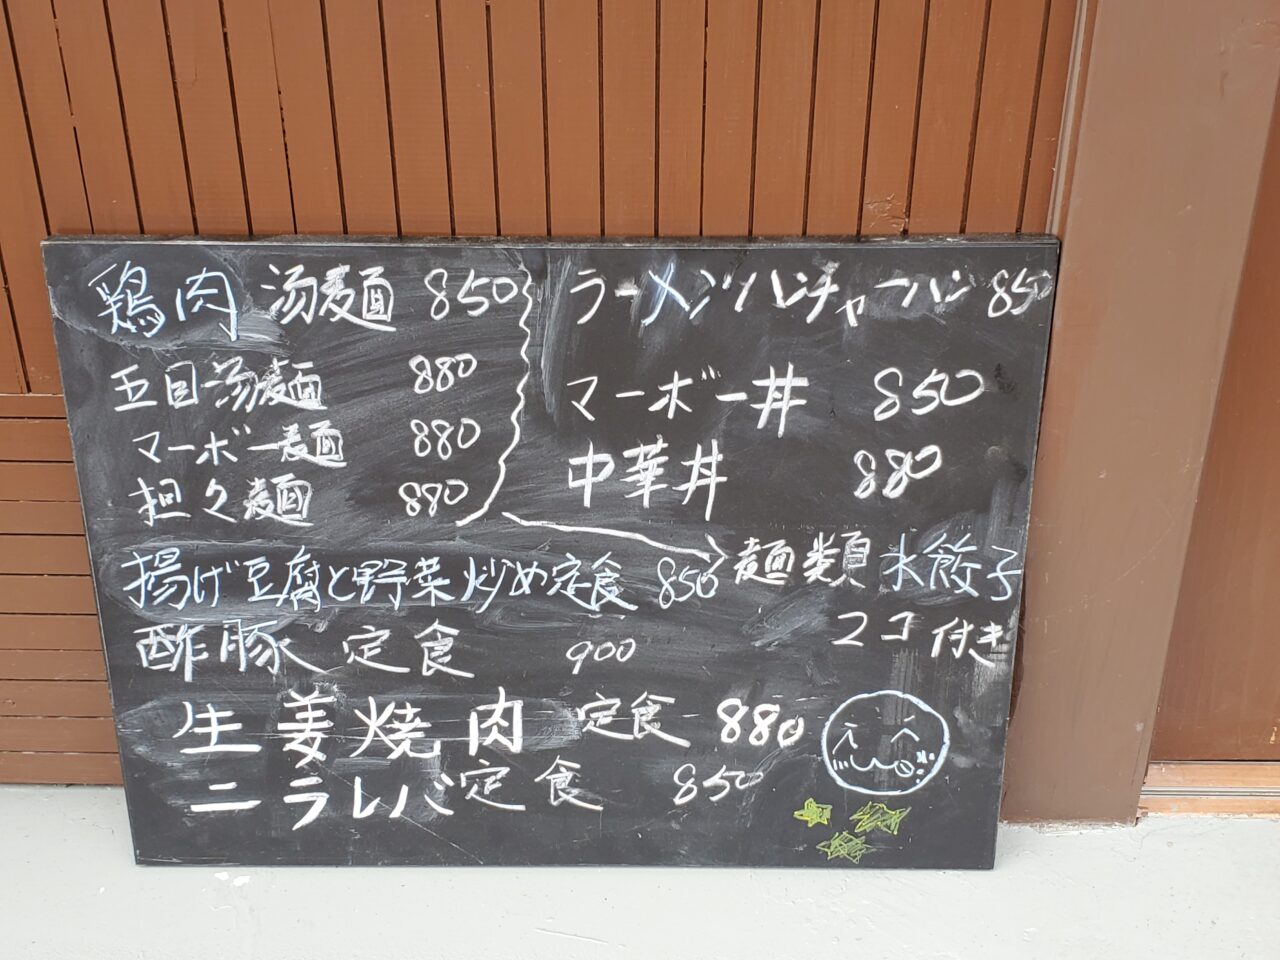 鶏肉 汤麺 850
五目汤麺 880
マーボー麺 880
担々麺 880
ラーメン/ハンチャーハン 850
マーボー丼 850
中華丼 880
麺類 水餃子
2コ付き
揚げ豆腐と野菜炒め定食 850
酢豚定食 900
生姜焼肉定食 880
ニラレバ定食 850